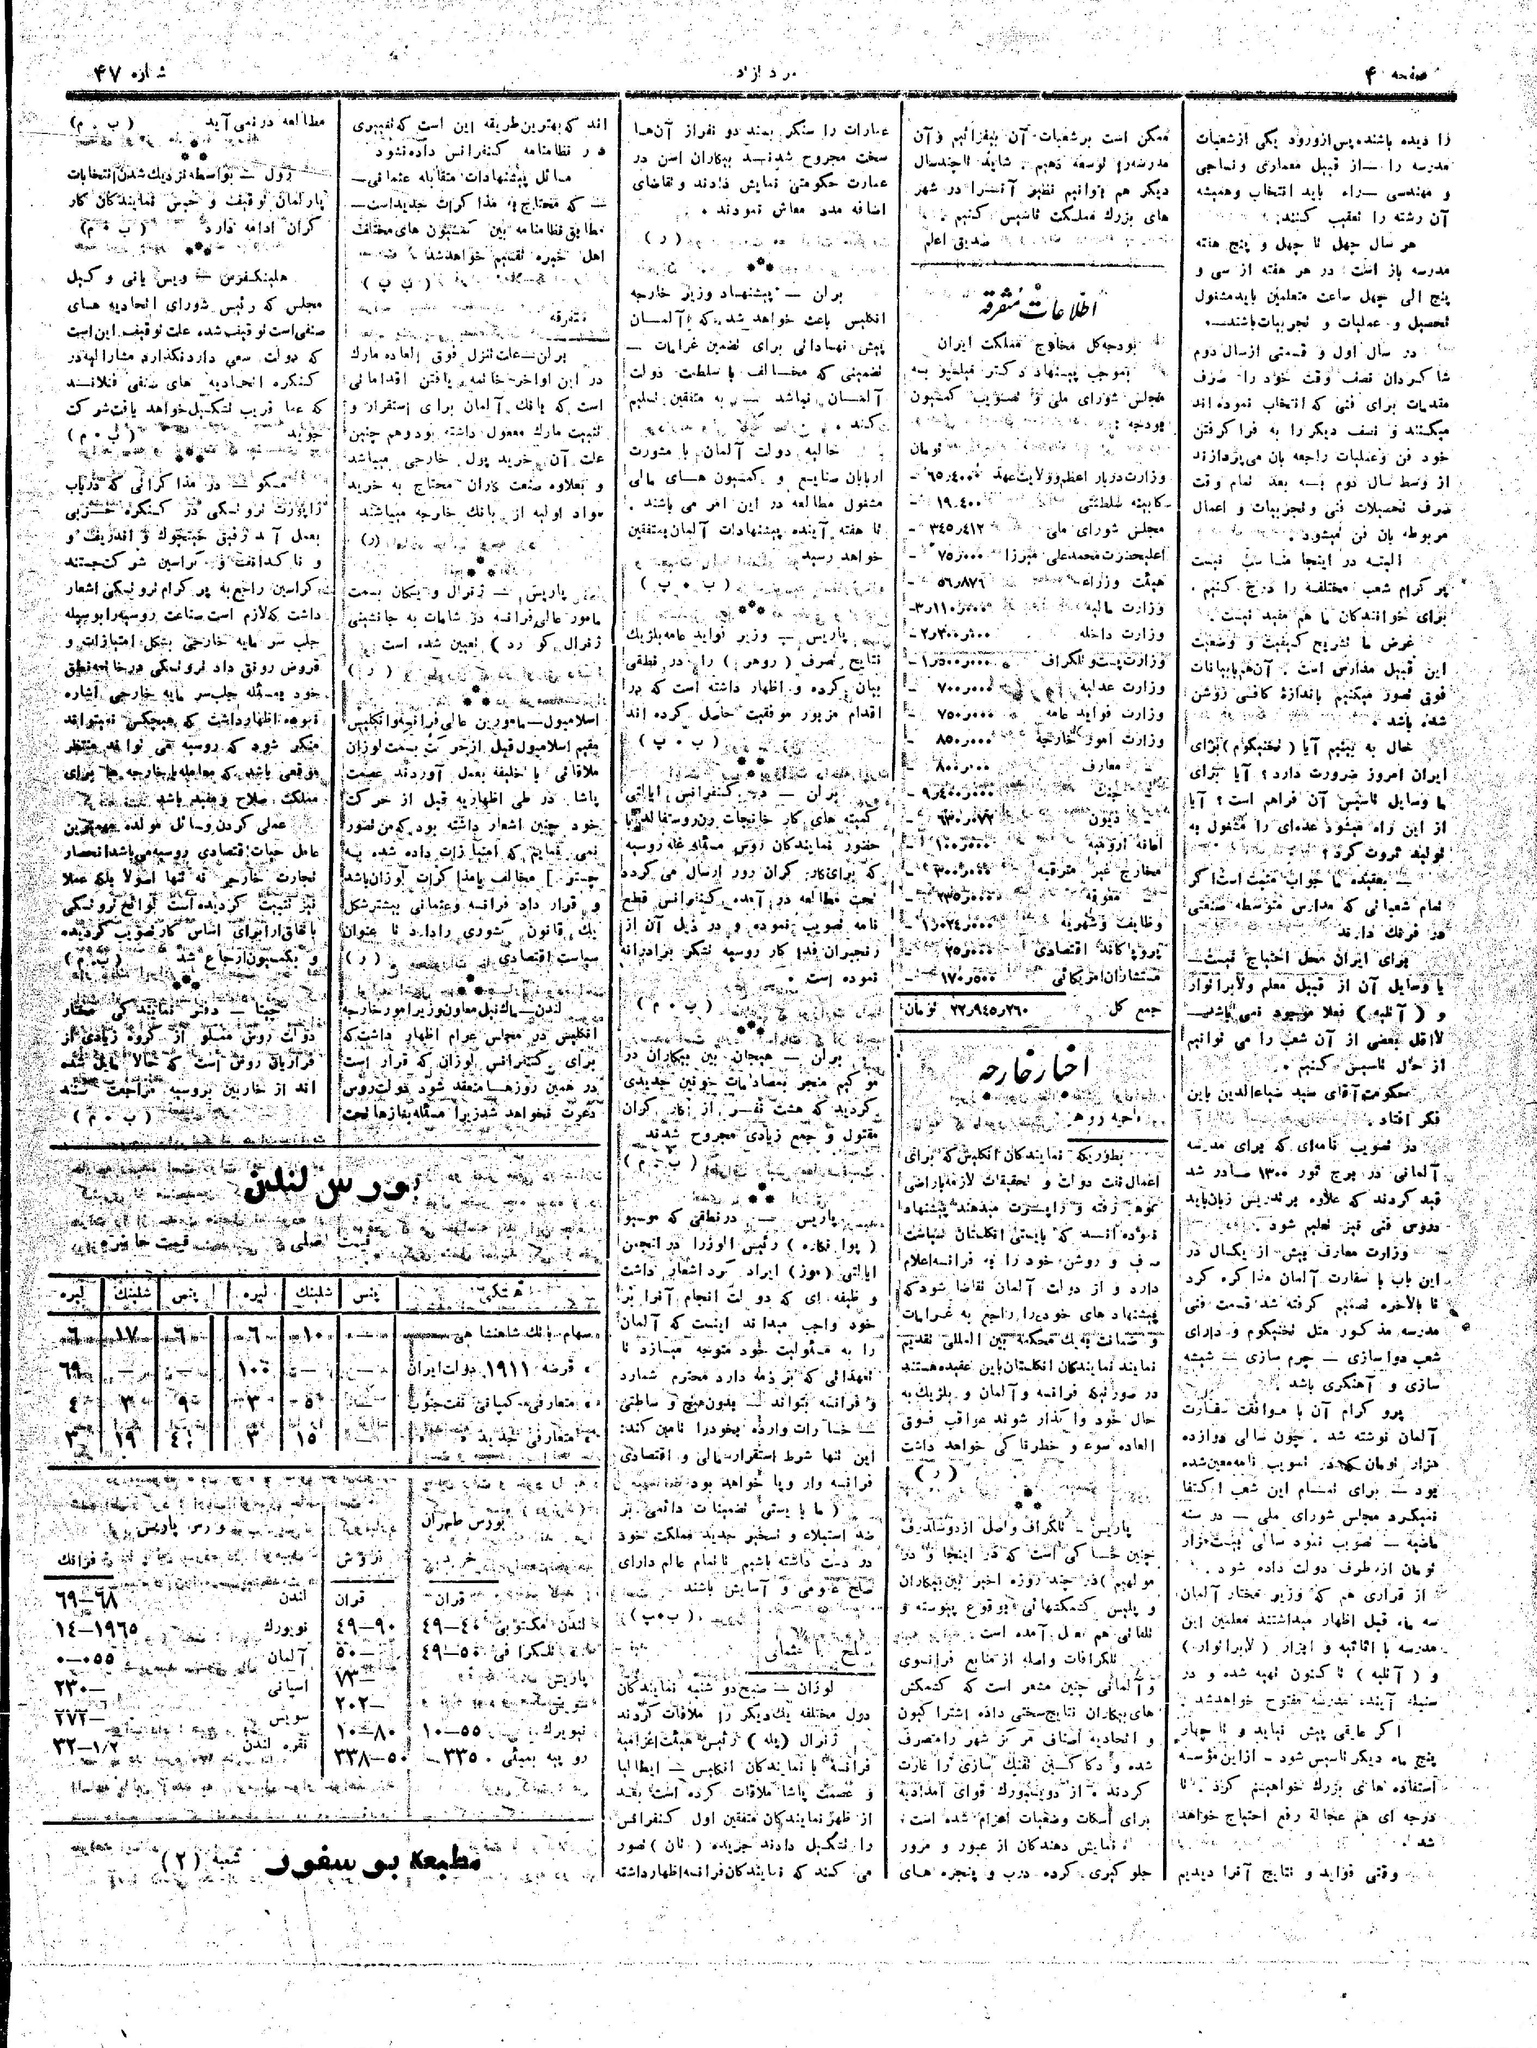 صفحه ۴
مرد آزاد
شماره ۴۷
را دیده باشند پس از ورود یکی از شعبات
مدرسه را از قبیل معماری و نساجی
و مهندسی راه باید انتخاب و همیشه
آن رشته را تعقیب کنند.
هر سال چهل تا چهل و پنج هفته
مدرسه باز است. در هر هفته از سی و
پنج الی چهل ساعت متعلمین باید مشغول
تحصیل و عملیات و تجربیات باشند.
در سال اول و قسمتی از سال دوم
شاگردان نصف وقت خود را صرف
مقدمات برای فنی که انتخاب نموده اند
میکنند و نصف دیگر را به فرا گرفتن
خود فن و عملیات راجعه بان می پردازند
از وسط سال دوم به بعد تمام وقت
صرف تحصیلات فنی و تجربیات و اعمال
مربوطه بان فن میشود.
البته در اینجا مناسب نیست
پرگرام شعب مختلفه را درج کنیم.
برای خوانندگان ما هم مفید نیست.
غرض ما تشریح کیفیت و وضعیت
این قبیل مدارس است. آن هم بابیانات
فوق تصور میکنیم باندازۀ کافی روشن
شده باشد.
حال به بینیم آیا (تخنیکوم) برای
ایران امروز ضرورت دارد؟ آیا برای
ما وسایل تاسیس آن فراهم است؟ آیا
از این راه میشود عده‌ای را مشغول به
تولید ثروت کرد؟
بعقیده ما جواب مثبت است اگر
تمام شعباتی که مدارس متوسطه صنعتی
در فرنگ دارند
برای ایران محل احتیاج نیست
یا وسایل آن از قبیل معلم و لابراتوار
و (آتلیه) فعلا موجود نمی باشد
لااقل بعضی از آن شعب را می توانیم
از حال تاسیس کنیم.
حکومت آقای سید ضیاءالدین باین
فکر افتاد.
در تصویب نامه‌ای که برای مدرسه
آلمانی در برج ثور ۱۳۰۰ صادر شد
قید کردند که علاوه بر تدریس زبان باید
دروس فنی نیز تعلیم شود.
وزارت معارف پیش از یکسال در
این باب با سفارت آلمان مذاکره کرد
تا بالاخره تصمیم گرفته شد قسمت فنی
مدرسه مذکور مثل تخنیکوم و دارای
شعب دواسازی – چرم سازی – شیشه
سازی و آهنگری باشد.
پروگرام آن با موافقت سفارت
آلمان نوشته شد. چون سالی دوازده
هزار تومان که در تصویب نامه معین شده
بود – برای تمام این شعب اکتفا
نمیکرد مجلس شورای ملی – در سنه
ماضیه – تصویب نمود سالی بیست هزار
تومان از طرف دولت داده شود.
از قراری هم که وزیر مختار آلمان
سه ماه قبل اظهار میداشتند معلمین این
مدرسه با اثاثیه و ابزار (لابراتوار)
و (آتلیه) تا کنون تهیه شده و در
سنبله آینده مدرسه مفتوح خواهد شد.
اگر عایقی پیش نیاید و تا چهار
پنج ماه دیگر تاسیس شود – از این مؤسسه
استفاده های بزرگ خواهیم کرد. تا
درجه ای هم عجالة رفع احتیاج خواهد
شد.
وقتی فواید و نتایج آنرا دیدیم
ممکن است بر شعبات آن بیفزائیم و آن
مدرسه را توسعه دهیم. شاید تا چند سال
دیگر هم توانیم نظیر آنسرا در شهر
های بزرگ مملکت تاسیس کنیم
صدیق اعلم
اطلاعات متفرقه
بودجه کل مخارج مملکت ایران
بموجب پیشنهاد دکتر میلسپو به
مجلس شورای ملی و تصویب کمسیون
بودجه:
تومان
وزارت دربار اعظم و ولایت عهد ۶۵٫۴۰۰۰
کابینه سلطنتی ۱۹٫۴۰۰
مجلس شورای ملی ۳۴۵٫۴۱۲
اعلیحضرت محمد علی میرزا ۷۵٫۰۰۰
هیئت وزراء ۵۶٫۸۷۶
وزارت مالیه ۳٫۱۱۰٫۰۰۰
وزارت داخله ۲٫۳۰۰٫۰۰۰
وزارت پست و تلگراف ۱٫۵۰۰٫۰۰۰
وزارت عدلیه ۷۰۰٫۰۰۰
وزارت فواید عامه ۷۵۰٫۰۰۰
وزارت امور خارجه ۸۵۰٫۰۰۰
معارف ۸۰۰٫۰۰۰
جنگ ۹٫۴۰۰٫۰۰۰
دیون
اعانه ارومیه ۱۰۰٫۰۰۰
مخارج غیر مترقبه ۳۰۰٫۰۰۰
معوقه ۲۳۵٫۰۰۰
وظایف و شهریه ۱٫۰۲۴٫۰۰۰
پروپاگاند اقتصادی ۲۵٫۰۰۰
مستشاران امریکائی ۱۷۰٫۵۰۰
جمع کل ۲۲٫۹۴۵٫۲۶۰ تومان
اخبار خارجه
ناحیه روهر
بطوریکه نمایندگان انگلیس که برای
دارد و از دولت آلمان تقاضا شود که
پیشنهاد های خود را راجع به غرامات
و ضمانت به یک محکمه بین المللی تقدیم
نمایند نمایندگان انگلستان باین عقیده هستند
در صورتیکه فرانسه و آلمان و بلژیک به
حال خود واگذار شوند عواقب فوق
العاده سوء و خطرناکی خواهد داشت
(ر)
پاریس – تلگراف واصل از دوسلدرف
چنین حاکی است که در اینجا و در
مولهیم در چند روزه اخیر بین بیکاران
و پلیس کشمکشهائی بوقوع پیوسته و
تلفاتی هم بعمل آمده است.
تلگرافات واصله از منابع فرانسوی
و آلمانی چنین مشعر است که کشمکش
های بیکاران نتایج سختی داده اشتراکیون
و اتحادیه اصناف مرکز شهر را متصرف
شده و دکاکین تفنگ سازی را غارت
کردند. از دویسبورک قوای امدادیه
برای اسکات وضعیات اعزام شده است.
نمایش دهندگان از عبور و مرور
جلوگیری کرده درب و پنجره های
عمارات را سنگر بندی دو نفر از آن‌ها
سخت مجروح شدند بیکاران اسن در
عمارت حکومتی نمایش دادند و تقاضای
اضافه مدد معاش نمودند.
(ر)
برلن – پیشنهاد وزیر خارجه
انگلیس باعث خواهد شد که آلمان
پیش نهاداتی برای تضمین غرامات –
تضمینی که مخالف با سلطنت دولت
آلمان نباشد – به متفقین تسلیم
کند.
حالیه دولت آلمان با مشورت
اربابان صنایع و کمسیون های مالی
مشغول مطالعه در این امر می باشند.
تا هفته آینده پیشنهادات آلمان بمتفقین
خواهد رسید
(ب.پ)
پاریس – وزیر فواید عامه بلژیک
نتایج تصرف (روهر) را در نطقی
بیان کرده و اظهار داشته است که در
اقدام مزبور موفقیت حاصل کرده اند
(ب.پ)
برلن – در کنفرانس ایالتی
کمیته های کارخانجات
حضور نمایندگان روس مسئله غله روسیه
که برای کارگران روهر ارسال می گردد
تحت مطالعه در آمده. کنفرانس قطع
نامه تصویب نموده و در ذیل آن از
رنجبران فداکار روسیه تشکر برادرانه
نموده است.
(ب.م)
برلن – هیجان بین بیکاران در
مولهیم منجر بمصادمات خونین جدیدی
گردید که هشت نفر از کارگران
مقتول و جمع زیادی مجروح شدند
(ب.م)
پاریس – در نطقی که موسیو
(پوانکاره) رئیس الوزرا در انجمن
ایالتی (موز) ایراد کرد اشعار داشت
وظیفه ای که دولت انجام آنرا بر
خود واجب میداند اینست که آلمان
را به مسئولیت خود متوجه میسازد تا
تعهداتی که بر ذمه دارد محترم شمارد
خسارات وارده بخود را تامین کند.
این تنها شرط استقرار مالی و اقتصادی
فرانسه و اروپا خواهد بود
(ما بایستی تضمینات دائمی بر
ضد استیلاء و تسخیر جدید مملکت خود
در دست داشته باشیم تا تمام عالم دارای
صلح عمومی و آسایش باشند)
(ب.پ)
صلح با عثمانی
لوزان – صبح دوشنبه نمایندگان
دول مختلفه یکدیگر را ملاقات کردند
ژنرال (پله) رئیس هیئت اعزامیه
فرانسه با نمایندگان انگلیس – ایطالیا
و عصمت پاشا ملاقات کرده است بعد
از ظهر نمایندگان متفقین اول کنفرانس
را تشکیل دادند جریده (تان) تصور
می کند که نمایندگان فرانسه اظهار داشته
اند که بهترین طریقه این است که تغییری
در نظامنامه کنفرانس داده نشود
مسائل پیشنهادات متقابله عثمانی –
که محتاج به مذاکرات جدید است –
مطابق نظامنامه بین کمسیون های مختلف
اهل خبره تقسیم خواهد شد
(ب.پ)
متفرقه
برلن – علت تنزل فوق العاده مارک
در این اواخر خاتمه یافتن اقداماتی
است که بانک آلمان برای استقرار و
تثبیت مارک معمول داشته بود و هم چنین
علت آن خرید پول خارجی میباشد
و بعلاوه صنعت کاران محتاج به خرید
مواد اولیه از بانک خارجه میباشند
(ر)
پاریس – ژنرال ویگان بسمت
مامور عالی فرانسه در شامات به جانشینی
ژنرال (گورد) تعیین شده است
(ر)
اسلامبول – مامورین عالی فرانسه و انگلیس
مقیم اسلامبول قبل از حرکت بسمت لوزان
ملاقاتی با خلیفه بعمل آوردند عصمت
پاشا در طی اظهاریه قبل از حرکت
خود چنین اشعار داشته بود که من تصور
نمی نمایم که امتیازات داده شده به
(چستر) مخالف با مذاکرات لوزان باشد
و قرار داد فرانسه و عثمانی بیشتر شکل
یک قانون کشوری را دارد تا عنوان
سیاست اقتصادی
(ر)
لندن – ماک نیل معاون وزیر امور خارجه
انگلیس در مجلس عوام اظهار داشت که
برای کنفرانس لوزان که قرار است
در همین روزها منعقد شود دولت روس
دعوت نخواهد شد زیرا مسئله بغازها تحت
مطالعه در نمی آید
(ب.م)
رول – بواسطه نزدیک شدن انتخابات
پارلمان توقیف و حبس نمایندگان کار
گران ادامه دارد
(ب.م)
هلسنگفرس – ویس یانی وکیل
مجلس که رئیس شورای اتحادیه های
صنفی است توقیف شده علت توقیف این است
که دولت سعی دارد نگذارد مشارالیه در
کنگره اتحادیه های صنفی فنلاند
که عما قریب تشکیل خواهد یافت شرکت
جوید
(ب.م)
مسکو – در مذاکراتی که در باب
راپورت تروتسکی در کنگره حزبی
بعمل آمد
کراسین راجع به پرگرام تروتسکی اشعار
داشت که لازم است صناعت روسیه را بوسیله
جلب سرمایه خارجی بشکل امتیازات و
قروض رونق داد تروتسکی در خاتمه نطق
خود بمسئله جلب سرمایه خارجی اشاره
نموده اظهار داشت که هیچکس نمیتواند
منکر شود که روسیه می تواند منتظر
موقعی باشد که معامله با خارجه ها برای
مملکت صلاح و مفید باشد
عملی کردن وسائل مولده مهمترین
عامل حیات اقتصادی روسیه می باشد انحصار
تجارت خارجی نه تنها اصولا بلکه عملا
نیز تثبیت گردیده است لوایح تروتسکی
باتفاق آرا برای اساس کار تصویب گردیده
و بکمسیون ارجاع شد
(ب.م)
چیتا – دفتر نمایندگی مختار
دولت روس مملو از گروه زیادی از
فراریان روس است که حالا مایل شده
اند از خاربین بروسیه مراجعت کنند
(ب.م)
بورس لندن
قیمت اصلی
قیمت حاضره
پنس شلینک لیره پنس شلینک لیره
سهام بانک شاهنشاهی – ۱۰ ۶ ۶ ۱۷ ۶
قرضه ۱۹۱۱ دولت ایران – – ۱۰۰ – – ۶۹
متعارفی کمپانی نفت جنوب – ۵ ۳ ۹ ۳ ۴
متعارفی جدید – ۱۵ ۳ ۱۹ ۳
بورس طهران
خرید فروش
قران قران
لندن مکتوبی ۴۹–۴۰ ۴۹–۹۰
تلگرافی ۴۹–۵۰ ۵۰–
پاریس ۷۳–
سویس ۲۰۲–
نیویرک ۱۰–۵۵ ۱۰–۸۰
روپیه بمبئی ۳۳۵–۰ ۳۳۸–۵۰
بورس پاریس
فرانک
لندن ۶۹–۶۸
نویورک ۱۴–۱۹۶۵
آلمان ۰–۰۵۵
اسپانی ۲۳۰–
سویس ۲۷۲–
نقره لندن ۳۲–۱/۲
مطبعهٔ بوسفور شعبه (۲)